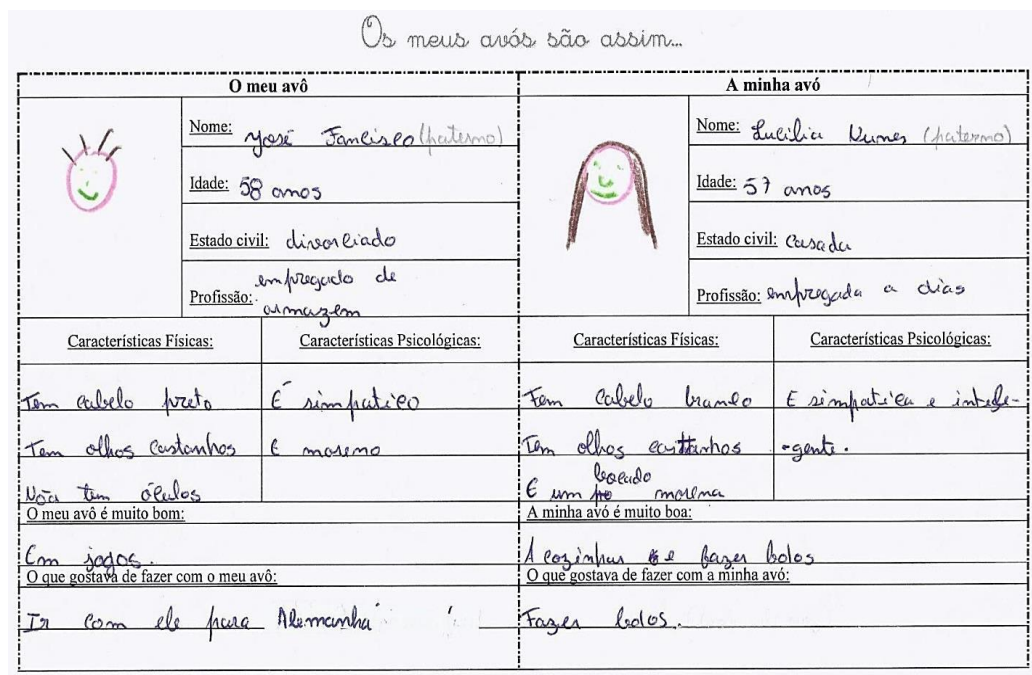 Os meus avós são assim...
O meu avô
Nome: José Fancisco (paterno)
Idade: 58 anos
Estado civil: divorciado
empregado de
Profissão: armazem
Características Físicas:
Tem cabelo preto
Tem olhos castanhos
Não tem óculos
Características Psicológicas:
É simpatico
E moreno
O meu avô é muito bom:
Em jogos.
O que gostava de fazer com o meu avô:
Ir com ele para Alemanha
A minha avó
Nome: Lucilia Nunes (paterno)
Idade: 57 anos
Estado civil: Casada
Profissão: empregada a dias
Características Físicas:
Tem cabelo branco
Tem olhos castanhos
E um bocado morena
Características Psicológicas:
E simpatica e intele-
-gente.
A minha avó é muito boa:
A cozinhar e fazer bolos
O que gostava de fazer com a minha avó:
Fazer bolos.